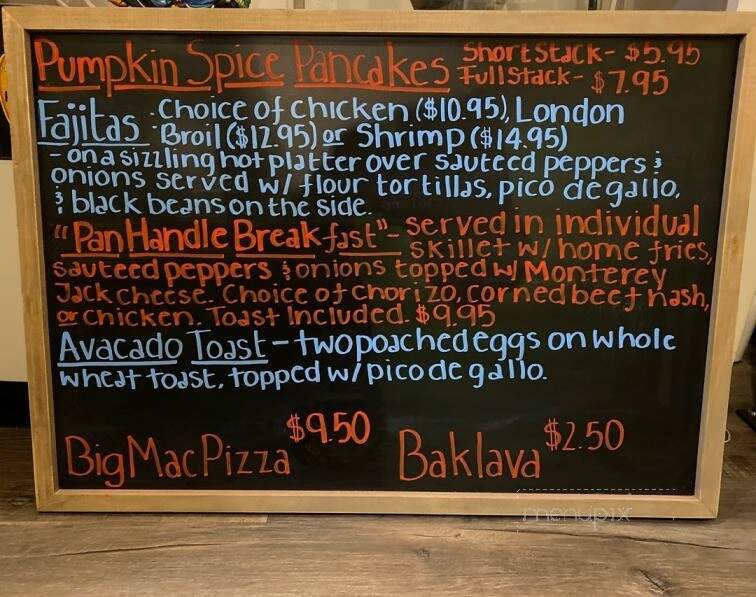 Pumpkin Spice Pancakes Short Stack- $5.95
Full Stack- $7.95
Fajitas - Choice of chicken ($10.95), London
Broil ($12.95) or Shrimp ($14.95)
- on a sizzling hot platter over sauteed peppers &
onions served w/ flour tortillas, pico de gallo,
& black beans on the side.
"Pan Handle Breakfast" - served in individual
skillet w/ home fries,
sauteed peppers & onions topped w/ Monterey
Jack cheese. Choice of chorizo, corned beef hash,
or chicken. Toast Included. $9.95
Avacado Toast - two poached eggs on whole
wheat toast, topped w/ pico de gallo.
Big Mac Pizza $9.50 Baklava $2.50
menupix